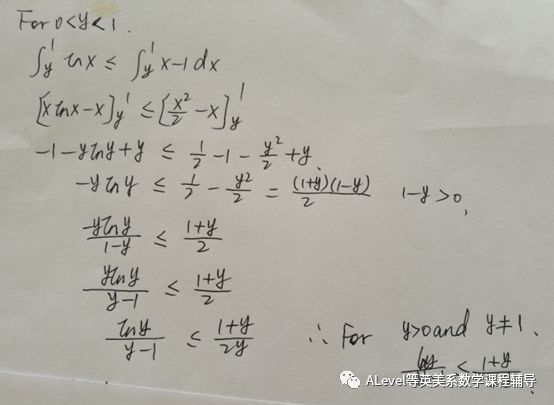 For 0<y<1.
∫_y^1 lnx ≤ ∫_y^1 x-1 dx
[xlnx-x]_y^1 ≤ [x²/2 -x]_y^1
-1-ylny+y ≤ 1/2 -1- y²/2 +y.
-ylny ≤ 1/2 - y²/2 = (1+y)(1-y)/2 1-y>0,
-ylny/1-y ≤ 1+y/2
ylny/y-1 ≤ 1+y/2
lny/y-1 ≤ 1+y/2y ∴ For y>0 and y≠1.
< 1+y
ALevel等英美系数学课程辅导